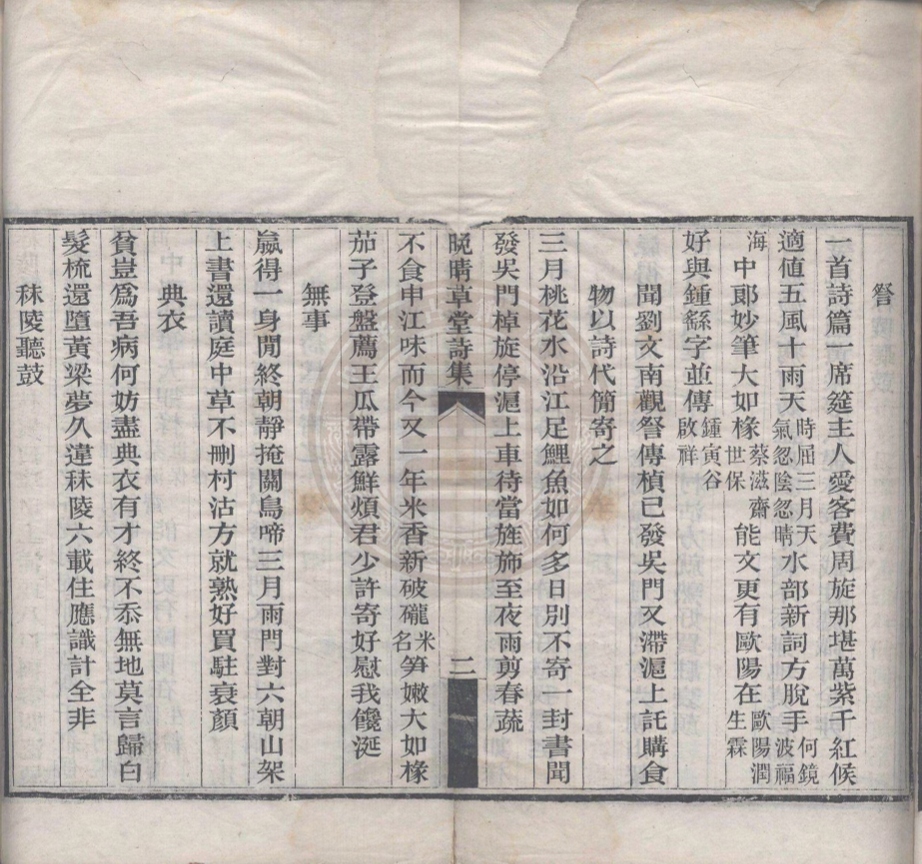 詧
一首詩篇一席筵主人愛客費周旋那堪萬紫千紅候
適値五風十雨天時屆三月天氣忽陰忽晴水部新詞方脫手何鏡波福
海中郞妙筆大如椽蔡滋齋世保能文更有歐陽在歐陽潤生霖
好與鍾繇字並傳鍾寅谷啟祥
聞劉文南觀詧傳楨已發吳門又滯滬上託購食
物以詩代簡寄之
三月桃花水沿江足鯉魚如何多日別不寄一封書聞
發吳門棹旋停滬上車待當旌斾至夜雨剪春蔬
晚晴草堂詩集 二
不食申江味而今又一年米香新破礲米名笋嫩大如椽
茄子登盤薦王瓜帶露鮮煩君少許寄好慰我饞涎
無事
嬴得一身閒終朝靜掩關鳥啼三月雨門對六朝山架
上書還讀庭中草不刪村沽方就熟好買駐衰顏
典衣
貧豈爲吾病何妨盡典衣有才終不忝無地莫言歸白
髮梳還墮黃粱夢久違秣陵六載住應識計全非
秣陵聽鼓